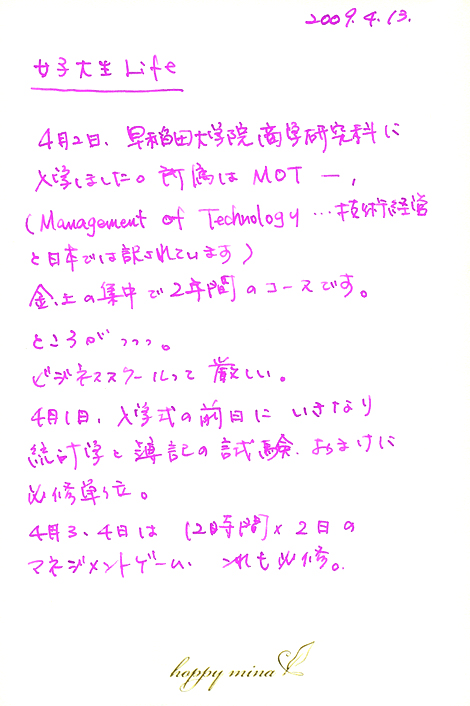 2009.4.13.
女子大生 Life
4月2日、早稲田大学院商学研究科に
入学しました。所属は MOT ー,
(Management of Technology …技術経営
と日本では訳されています)
金、土の集中で2年間のコースです。
ところがっっっ。
ビジネススクールって厳しい。
4月1日、入学式の前日に いきなり
統計学と簿記の試験、おまけに
必修単位。
4月3、4日は 12時間×2日の
マネジメントゲーム、これも必修。
happy mina